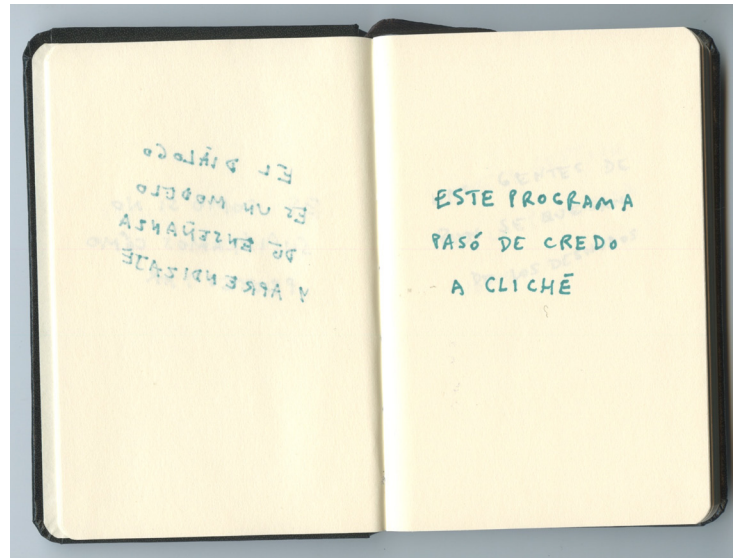 EL DIÁLOGO
ES UN MODELO
DE ENSEÑANZA
Y APRENDIZAJE
ESTE PROGRAMA
PASÓ DE CREDO
A CLICHÉ